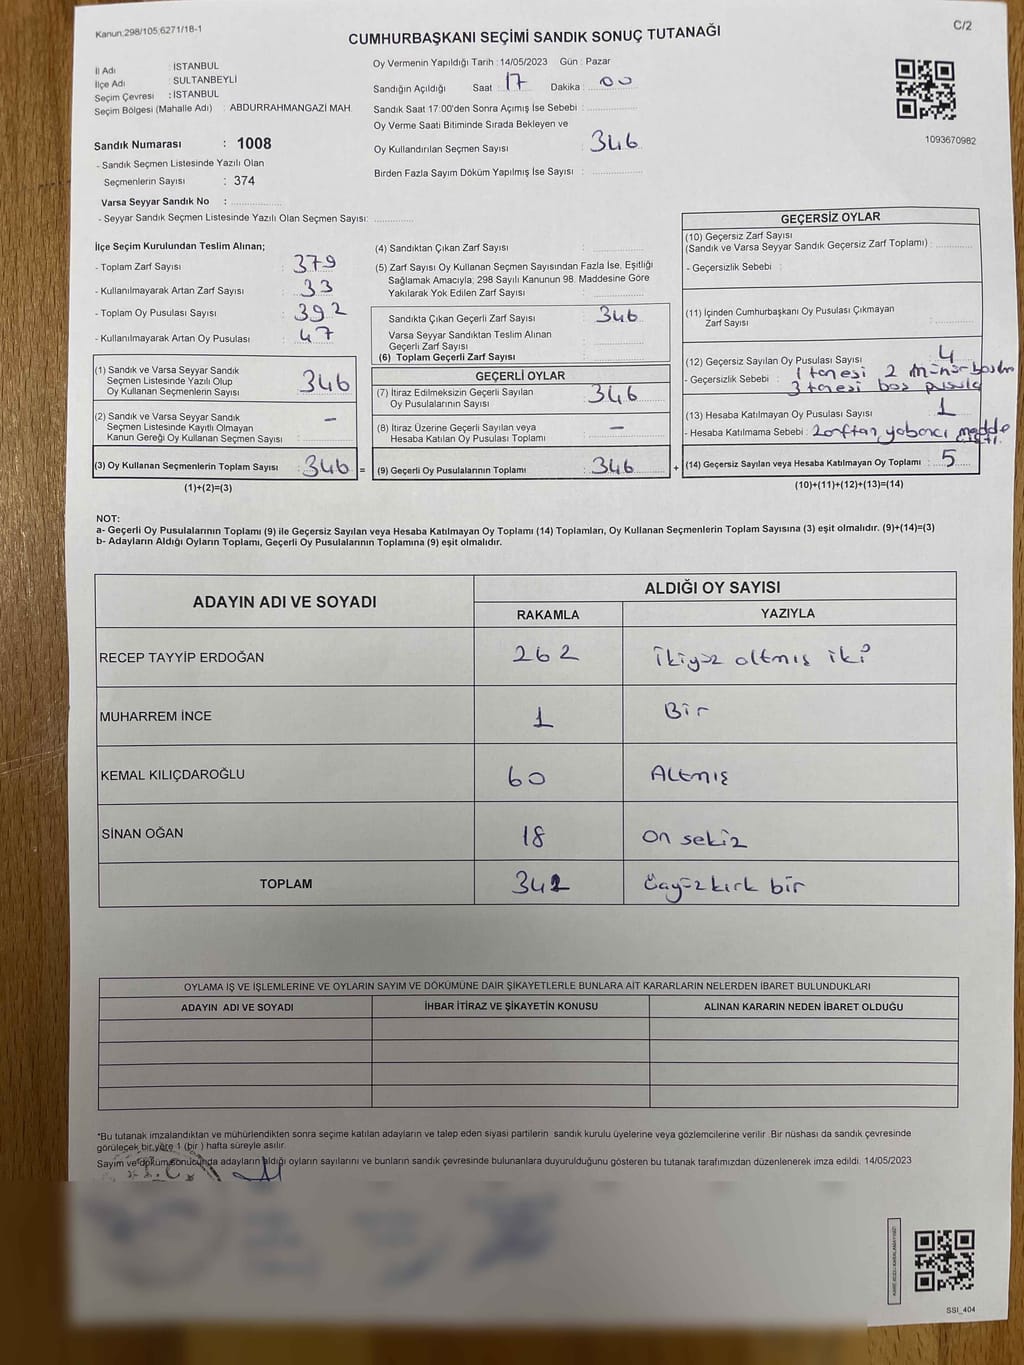 Kanun:298/105;6271/18-1
C/2
CUMHURBAŞKANI SEÇİMİ SANDIK SONUÇ TUTANAĞI
İl Adı : İSTANBUL
İlçe Adı : SULTANBEYLİ
Seçim Çevresi : İSTANBUL
Seçim Bölgesi (Mahalle Adı) : ABDURRAHMANGAZİ MAH.
Sandık Numarası : 1008
- Sandık Seçmen Listesinde Yazılı Olan
Seçmenlerin Sayısı : 374
Varsa Seyyar Sandık No :
- Seyyar Sandık Seçmen Listesinde Yazılı Olan Seçmen Sayısı:
Oy Vermenin Yapıldığı Tarih : 14/05/2023 Gün : Pazar
Sandığın Açıldığı Saat : 17 Dakika : 00
Sandık Saat 17:00'den Sonra Açımış İse Sebebi :
Oy Verme Saati Bitiminde Sırada Bekleyen ve
Oy Kullandırılan Seçmen Sayısı : 346
Birden Fazla Sayım Döküm Yapılmış İse Sayısı :
1093670982
İlçe Seçim Kurulundan Teslim Alınan;
- Toplam Zarf Sayısı : 379
- Kullanılmayarak Artan Zarf Sayısı : 33
- Toplam Oy Pusulası Sayısı : 392
- Kullanılmayarak Artan Oy Pusulası : 47
(1) Sandık ve Varsa Seyyar Sandık
Seçmen Listesinde Yazılı Olup
Oy Kullanan Seçmenlerin Sayısı : 346
(2) Sandık ve Varsa Seyyar Sandık
Seçmen Listesinde Kayıtlı Olmayan
Kanun Gereği Oy Kullanan Seçmen Sayısı : –
(3) Oy Kullanan Seçmenlerin Toplam Sayısı : 346 =
(1)+(2)=(3)
(4) Sandıktan Çıkan Zarf Sayısı :
(5) Zarf Sayısı Oy Kullanan Seçmen Sayısından Fazla İse, Eşitliği
Sağlamak Amacıyla; 298 Sayılı Kanunun 98. Maddesine Göre
Yakılarak Yok Edilen Zarf Sayısı :
Sandıkta Çıkan Geçerli Zarf Sayısı : 346
Varsa Seyyar Sandıktan Teslim Alınan
Geçerli Zarf Sayısı :
(6) Toplam Geçerli Zarf Sayısı :
GEÇERLİ OYLAR
(7) İtiraz Edilmeksizin Geçerli Sayılan
Oy Pusulalarının Sayısı : 346
(8) İtiraz Üzerine Geçerli Sayılan veya
Hesaba Katılan Oy Pusulası Toplamı : –
(9) Geçerli Oy Pusulalarının Toplamı : 346 +
GEÇERSİZ OYLAR
(10) Geçersiz Zarf Sayısı
(Sandık ve Varsa Seyyar Sandık Geçersiz Zarf Toplamı) :
- Geçersizlik Sebebi :
(11) İçinden Cumhurbaşkanı Oy Pusulası Çıkmayan
Zarf Sayısı :
(12) Geçersiz Sayılan Oy Pusulası Sayısı : 4
- Geçersizlik Sebebi : 1 tanesi 2
3 tanesi boş pusula
(13) Hesaba Katılmayan Oy Pusulası Sayısı : 1
- Hesaba Katılmama Sebebi : Zarftan yabancı madde
(14) Geçersiz Sayılan veya Hesaba Katılmayan Oy Toplamı : 5
(10)+(11)+(12)+(13)=(14)
NOT:
a- Geçerli Oy Pusulalarının Toplamı (9) ile Geçersiz Sayılan veya Hesaba Katılmayan Oy Toplamı (14) Toplamları, Oy Kullanan Seçmenlerin Toplam Sayısına (3) eşit olmalıdır. (9)+(14)=(3)
b- Adayların Aldığı Oyların Toplamı, Geçerli Oy Pusulalarının Toplamına (9) eşit olmalıdır.
ADAYIN ADI VE SOYADI
ALDIĞI OY SAYISI
RAKAMLA YAZIYLA
RECEP TAYYİP ERDOĞAN 262 İkiyüz altmış iki
MUHARREM İNCE 1 Bir
KEMAL KILIÇDAROĞLU 60 Altmış
SİNAN OĞAN 18 On sekiz
TOPLAM 341 Üçyüz kırk bir
OYLAMA İŞ VE İŞLEMLERİNE VE OYLARIN SAYIM VE DÖKÜMÜNE DAİR ŞİKAYETLERLE BUNLARA AİT KARARLARIN NELERDEN İBARET BULUNDUKLARI
ADAYIN ADI VE SOYADI İHBAR İTİRAZ VE ŞİKAYETİN KONUSU ALINAN KARARIN NEDEN İBARET OLDUĞU
*Bu tutanak imzalandıktan ve mühürlendikten sonra seçime katılan adayların ve talep eden siyasi partilerin sandık kurulu üyelerine veya gözlemcilerine verilir .Bir nüshası da sandık çevresinde
görülecek bir yere 1 (bir ) hafta süreyle asılır.
Sayım ve döküm sonucunda adayların aldığı oyların sayılarını ve bunların sandık çevresinde bulunanlara duyurulduğunu gösteren bu tutanak tarafımızdan düzenlenerek imza edildi. 14/05/2023
SSI_404